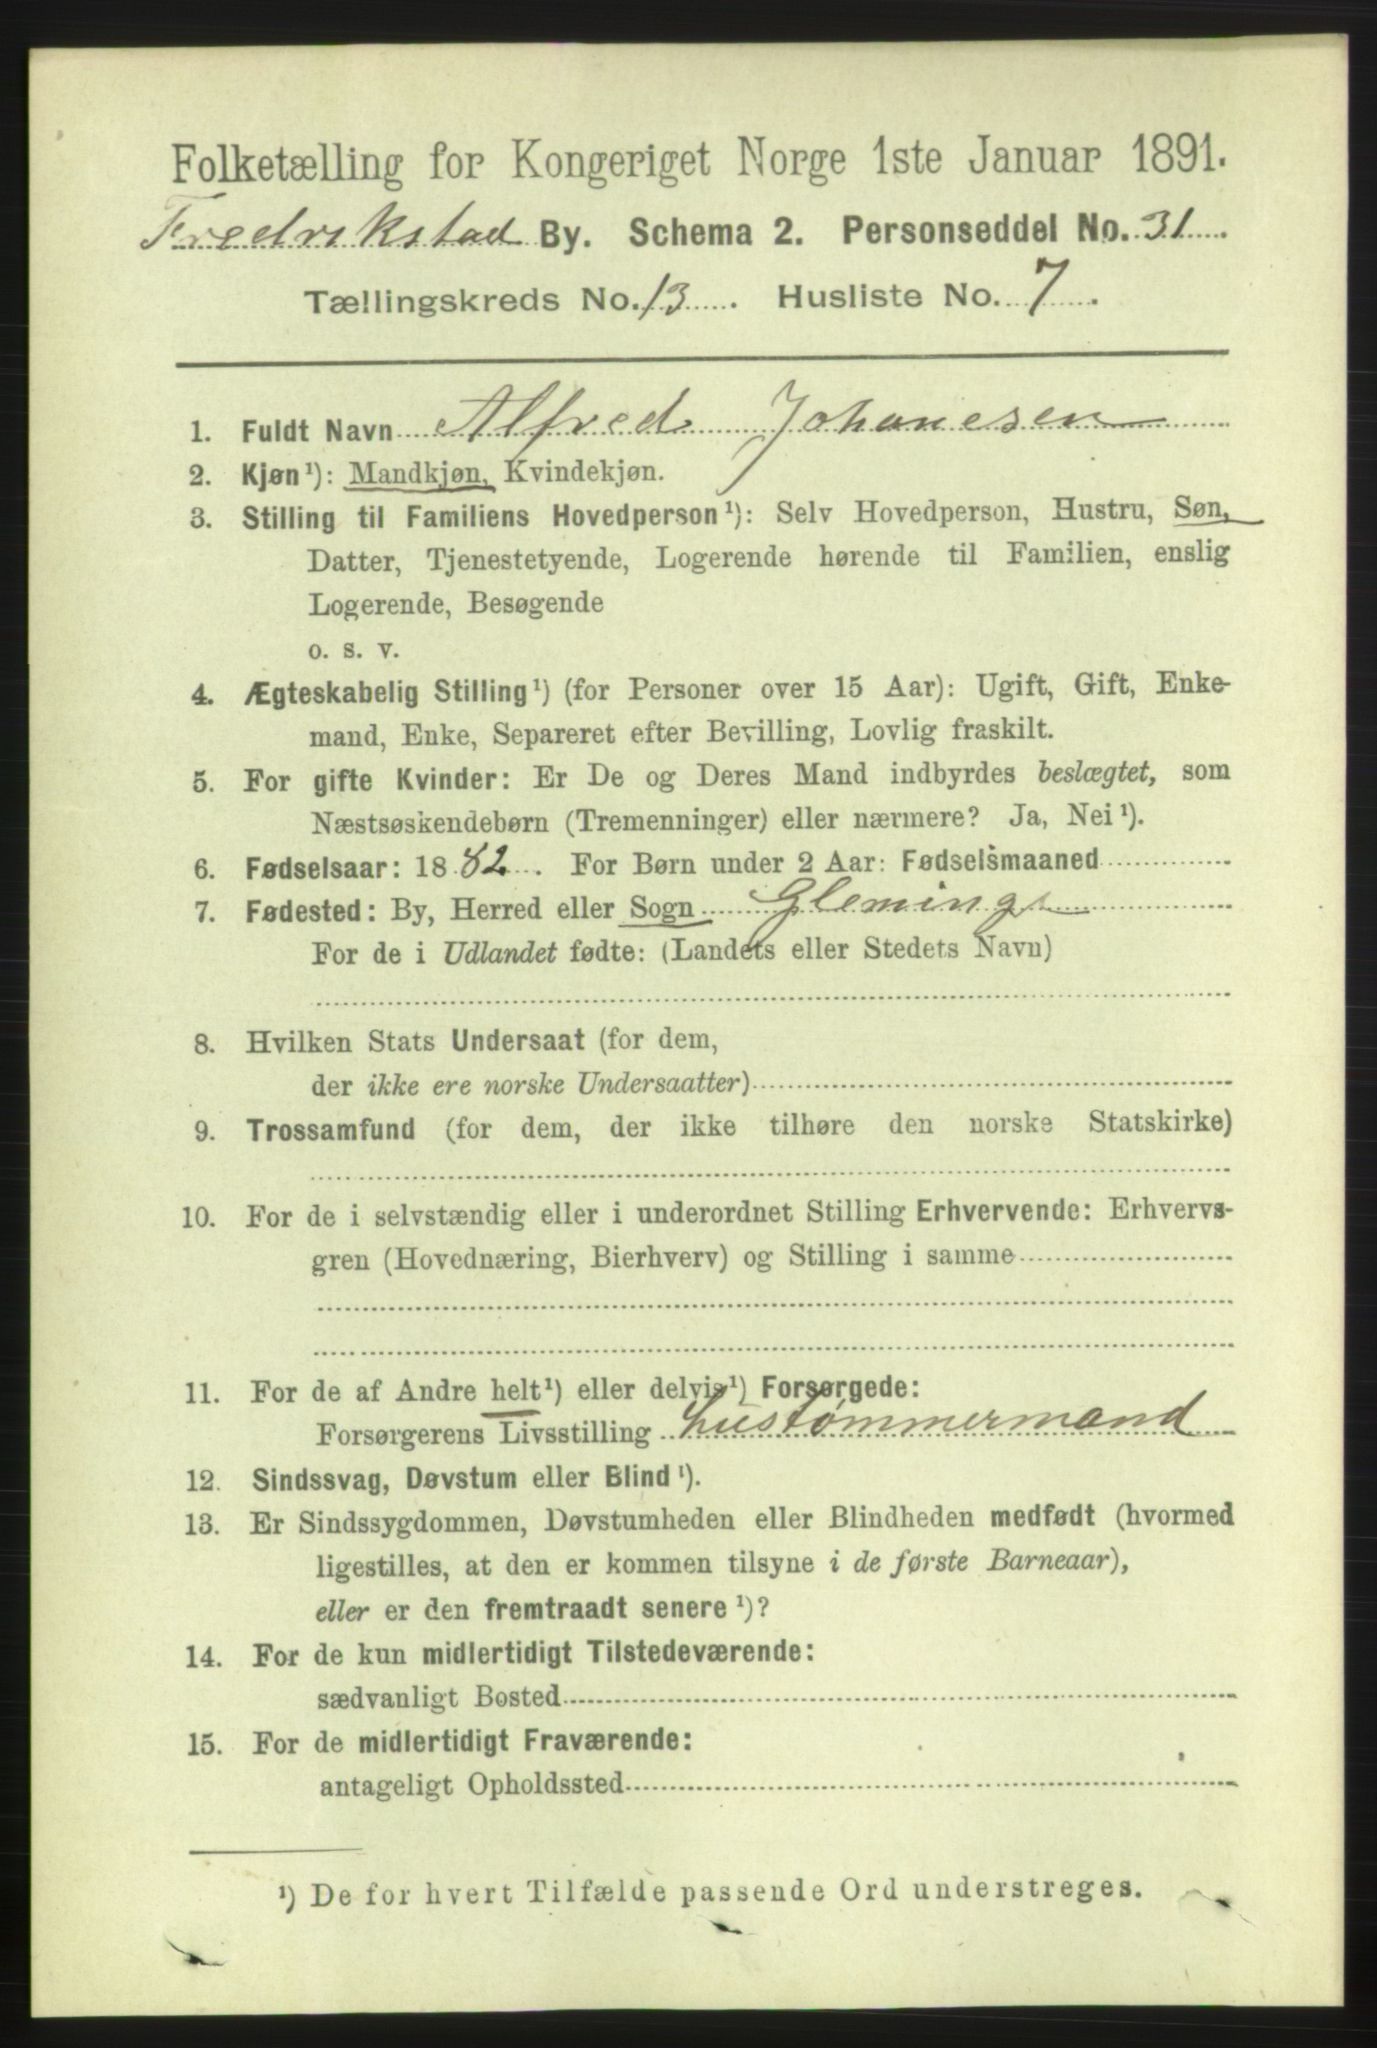 Folketælling for Kongeriget Norge 1ste Januar 1891.
Fredrikstad By. Schema 2. Personseddel No. 31
Tællingskreds No. 13. Husliste No. 7.
1. Fuldt Navn Alfred Johanesen
2. Kjøn¹): Mandkjøn, Kvindekjøn.
3. Stilling til Familiens Hovedperson¹): Selv Hovedperson, Hustru, Søn,
Datter, Tjenestetyende, Logerende hørende til Familien, enslig
Logerende, Besøgende
o. s. v.
4. Ægteskabelig Stilling¹) (for Personer over 15 Aar): Ugift, Gift, Enke-
mand, Enke, Separeret efter Bevilling, Lovlig fraskilt.
5. For gifte Kvinder: Er De og Deres Mand indbyrdes beslægtet, som
Næstsøskendebørn (Tremenninger) eller nærmere? Ja, Nei¹).
6. Fødselsaar: 1882. For Børn under 2 Aar: Fødselsmaaned
7. Fødested: By, Herred eller Sogn Gleminge
For de i Udlandet fødte: (Landets eller Stedets Navn)
8. Hvilken Stats Undersaat (for dem,
der ikke ere norske Undersaatter)
9. Trossamfund (for dem, der ikke tilhøre den norske Statskirke)
10. For de i selvstændig eller i underordnet Stilling Erhvervende: Erhvervs-
gren (Hovednæring, Bierhverv) og Stilling i samme
11. For de af Andre helt¹) eller delvis¹) Forsørgede:
Forsørgerens Livsstilling hustømmermand
12. Sindssvag, Døvstum eller Blind¹).
13. Er Sindssygdommen, Døvstumheden eller Blindheden medfødt (hvormed
ligestilles, at den er kommen tilsyne i de første Barneaar),
eller er den fremtraadt senere¹)?
14. For de kun midlertidigt Tilstedeværende:
sædvanligt Bosted
15. For de midlertidigt Fraværende:
antageligt Opholdssted
¹) De for hvert Tilfælde passende Ord understreges.